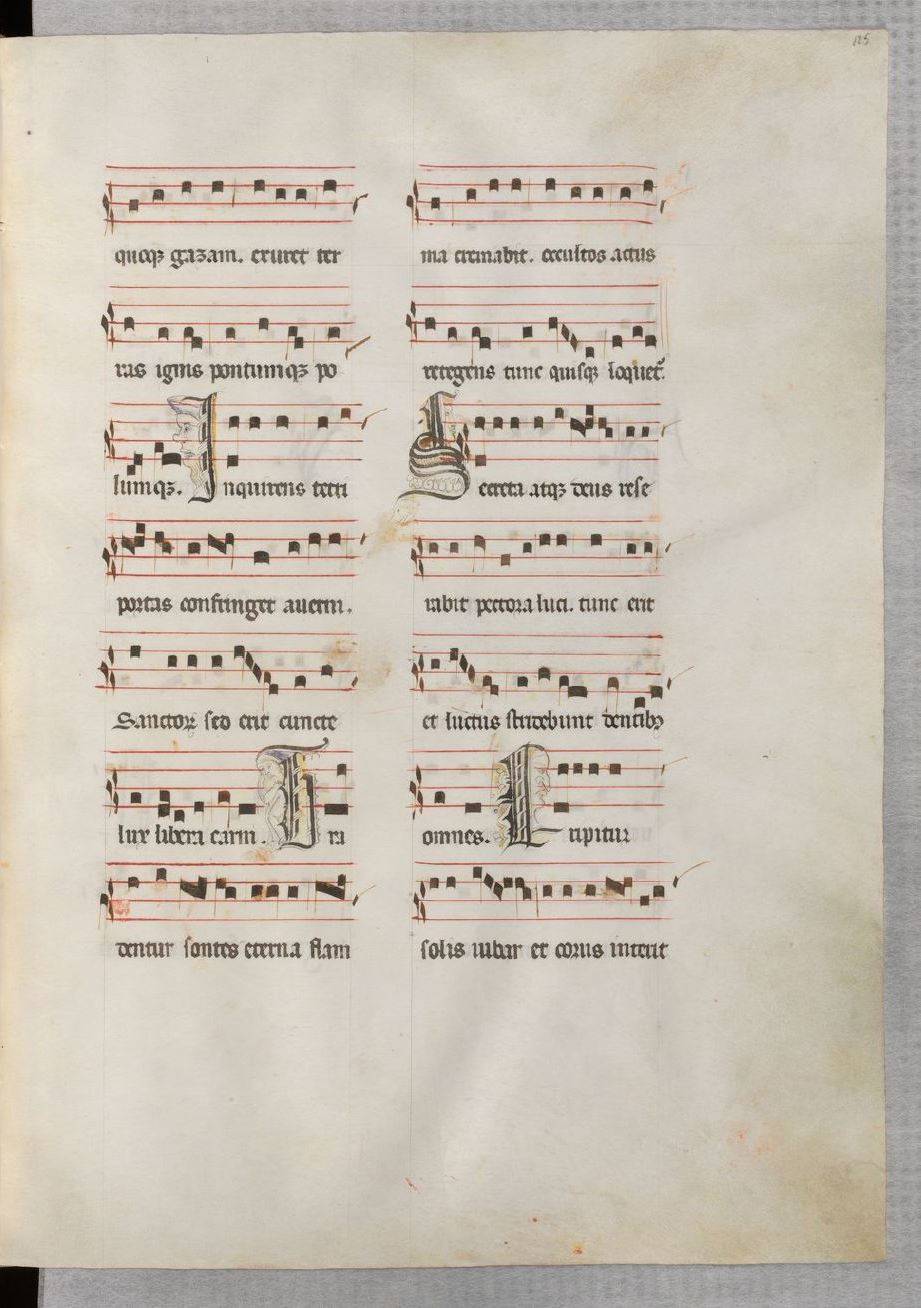 125
queqꝫ gazam. exuret ter
ras ignis pontumqꝫ po
lumqꝫ. Inquirens tetri
portas confringet auerni.
Sanctoꝝ sed erit cuncte
lux libera carni. Tra
dentur sontes eterna flam
ma cremabit. occultos actus
retegens tunc quisqꝫ loquet᷑.
Secreta atqꝫ deus rese
rabit pectora luci. tunc erit
et luctus stridebunt dentibꝫ
omnes. Eripitur
solis iubar et corus interit